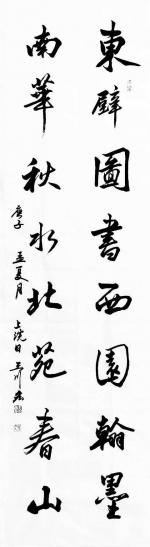 東壁圖書西園翰墨
南華秋水北苑春山
庚子孟夏月上浣日